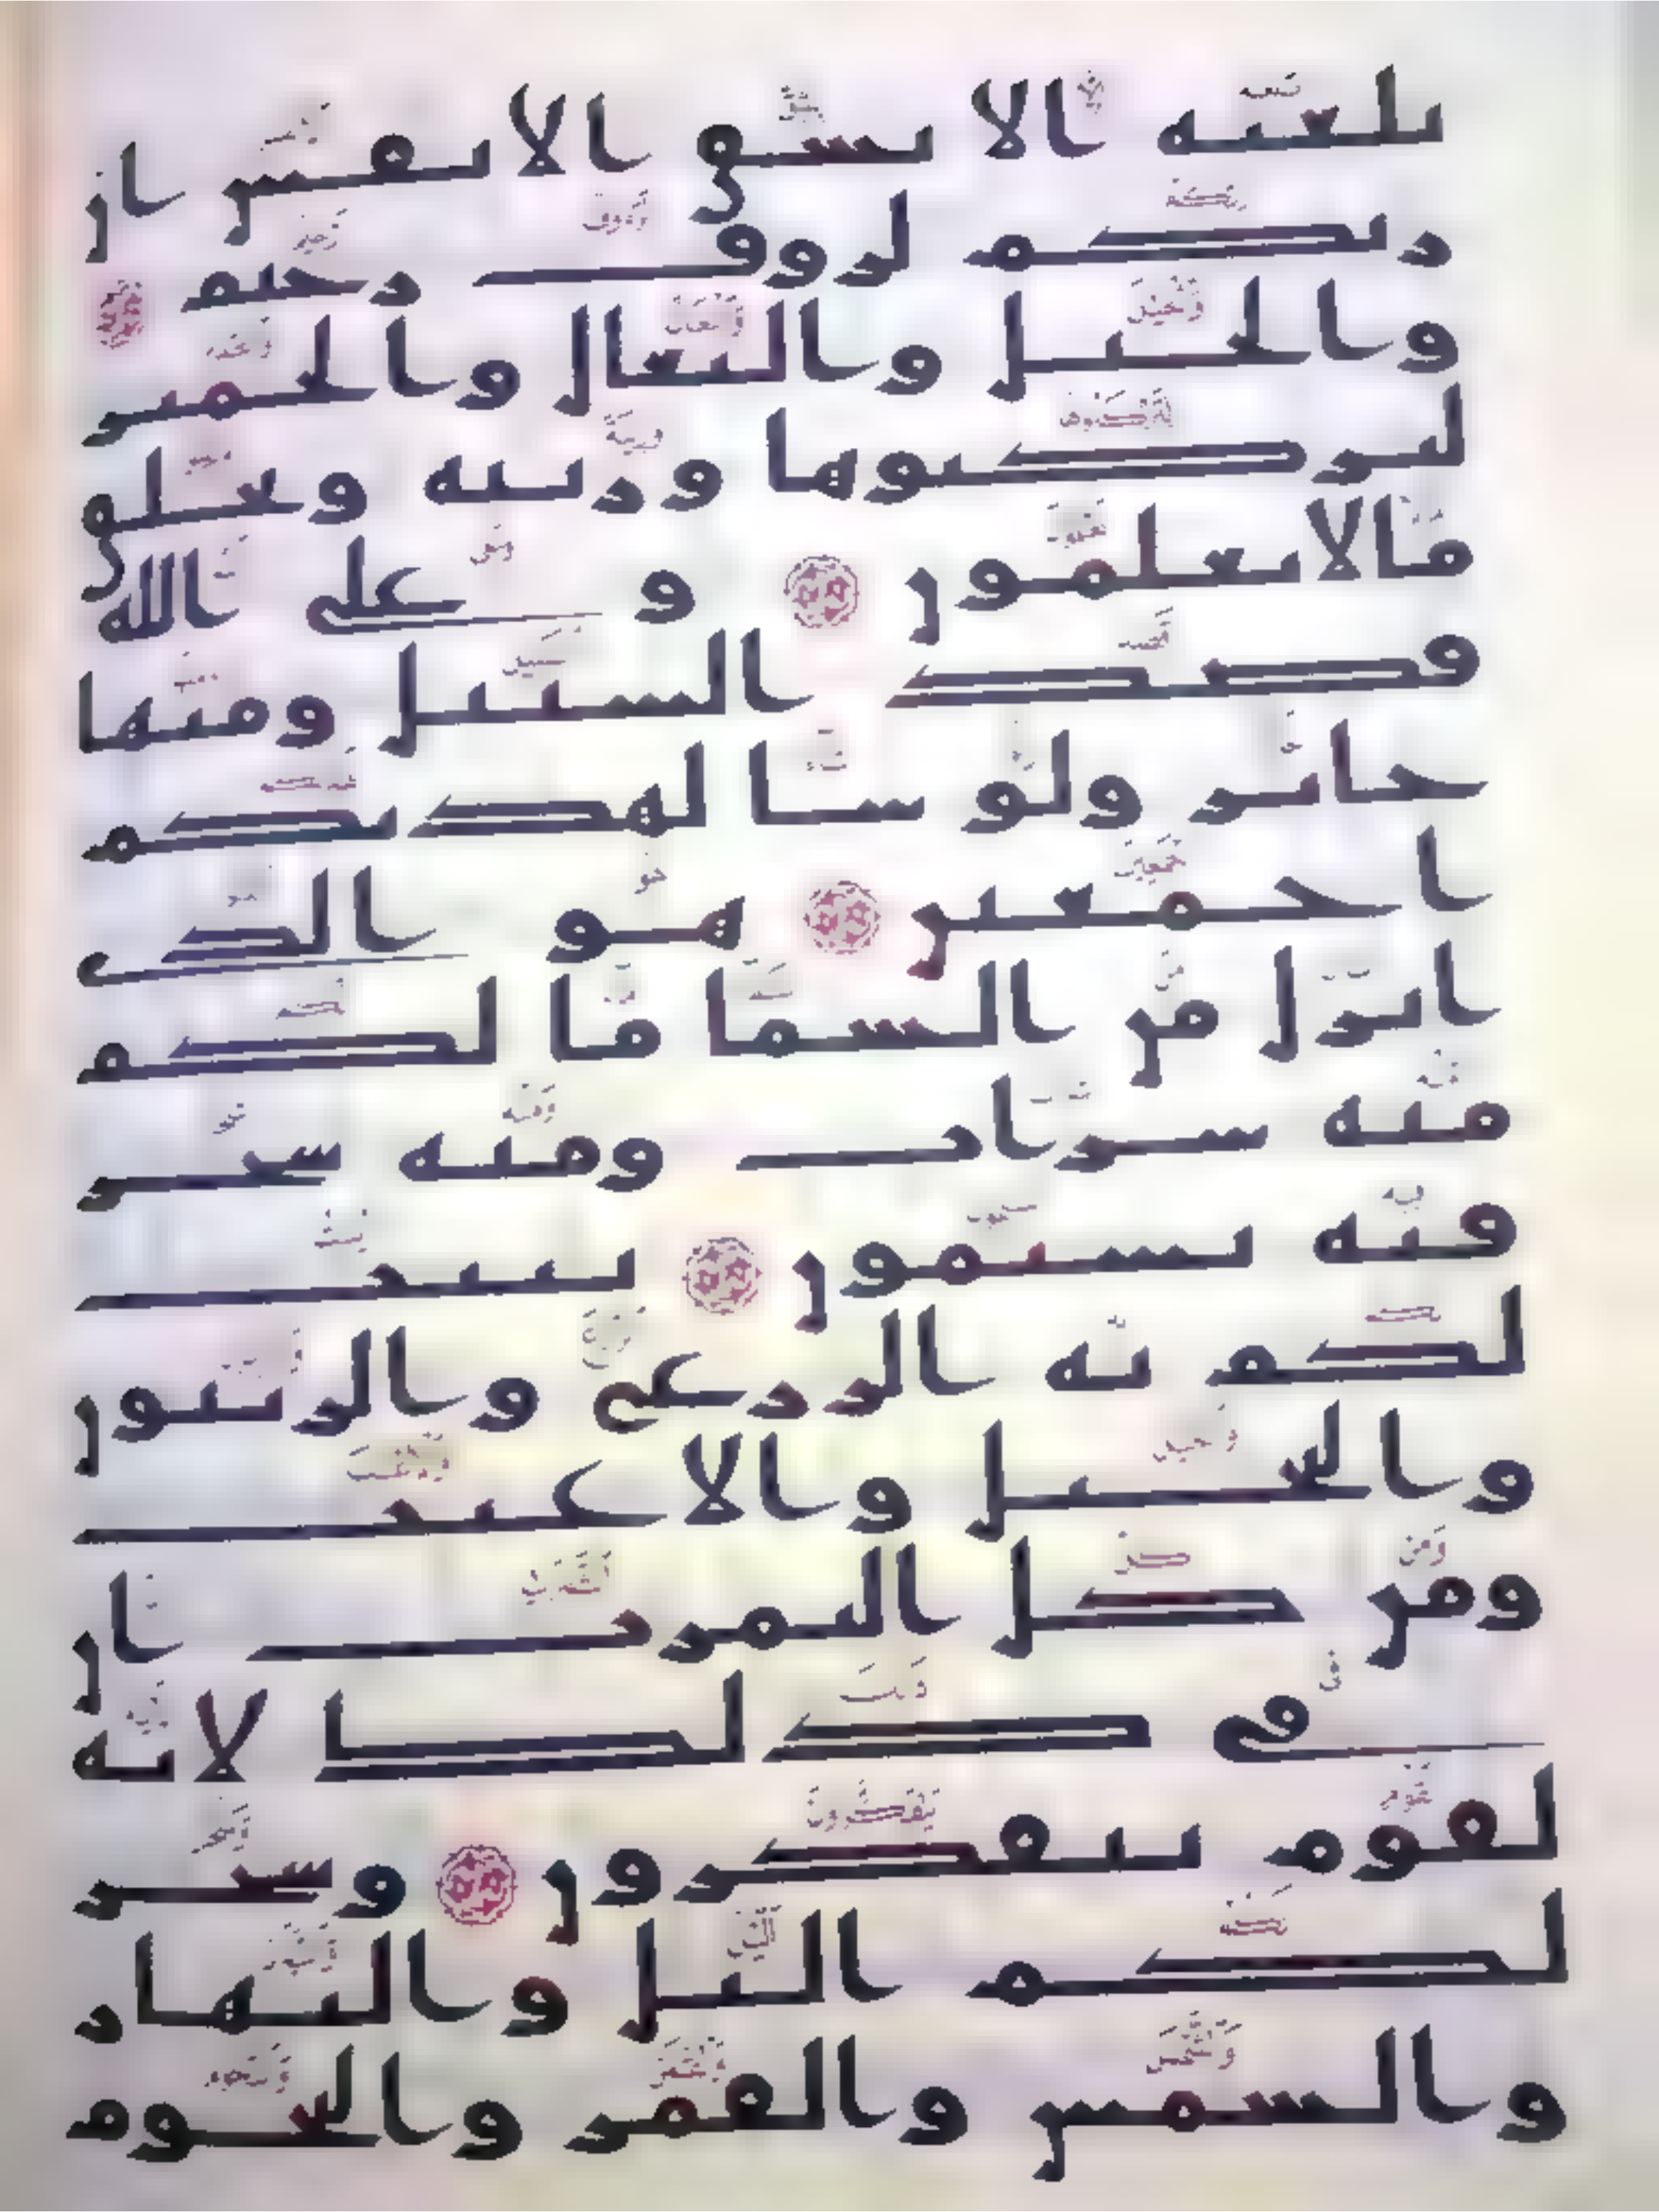 بلغيه الا بشق الانفس ان
ربكم لروف رحيم
والخيل والبغال والحمير
لتركبوها وزينة ويخلق
ما لا تعلمون وعلى الله
قصد السبيل ومنها
جائر ولو شا لهديكم
اجمعين هو الذي
انزل من السما ما لكم
منه شراب ومنه شجر
فيه تسيمون ينبت
لكم به الزرع والزيتون
والنخيل والاعنب
ومن كل الثمرت ان
في ذلك لاية
لقوم يتفكرون وسخر
لكم اليل والنهار
والشمس والقمر والنجوم